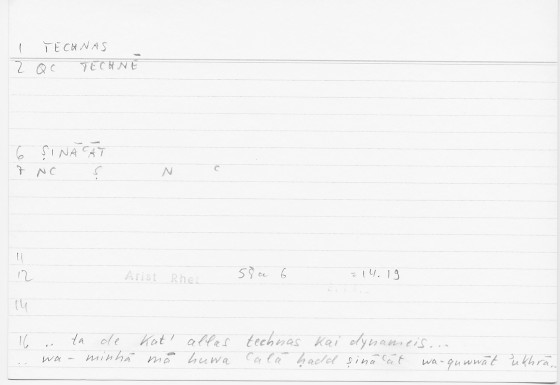 1 TECHNAS
2 QC TECHNĒ
6 ṢINĀʿĀT
7 NC Ṣ N ʿ
11
12 Arist Rhet 59a 6 = 14.19
14
16 .. ta de kat' allas technas kai dynameis...
.. wa-minhā mā huwa ʿalā ḥadd ṣināʿāt wa-quwwāt ʾukhrā.